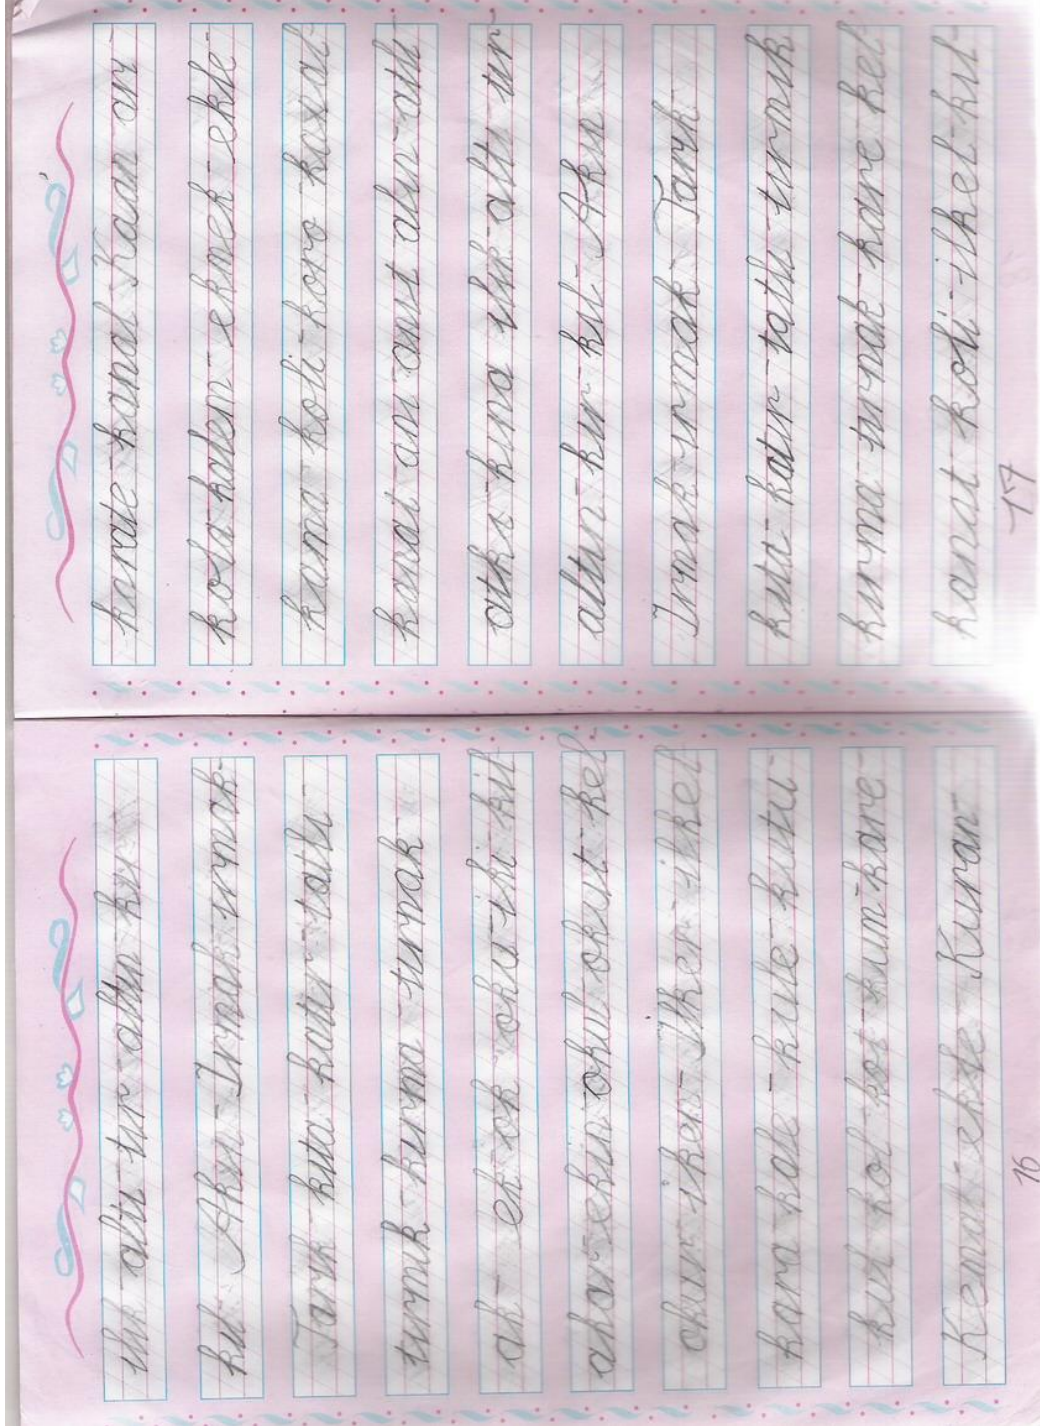 ılık altı tır altın kır
kıl Akın Irmak ırmak
Tarık kuta katır tatlı
tırnak kurma turnak
ak ek ok oku iki kil
akar ekin okul okut kel
okur iker İlker ilkel
kara kale kule kutu
kul kol kot kum kare
Kemal ekle Kuran
16
karate kanal Kaan arı
kola kalem ekmek ekle
kama koli koro koral
kanat anı onlt alın atlı
atkı kına ılık altı tır
altın kır kıl Akın
Irmak ırmak Tarık
kuta katır tatlı tırnık
kurma turnak kare kel
kanat koli ilkel kıl
17